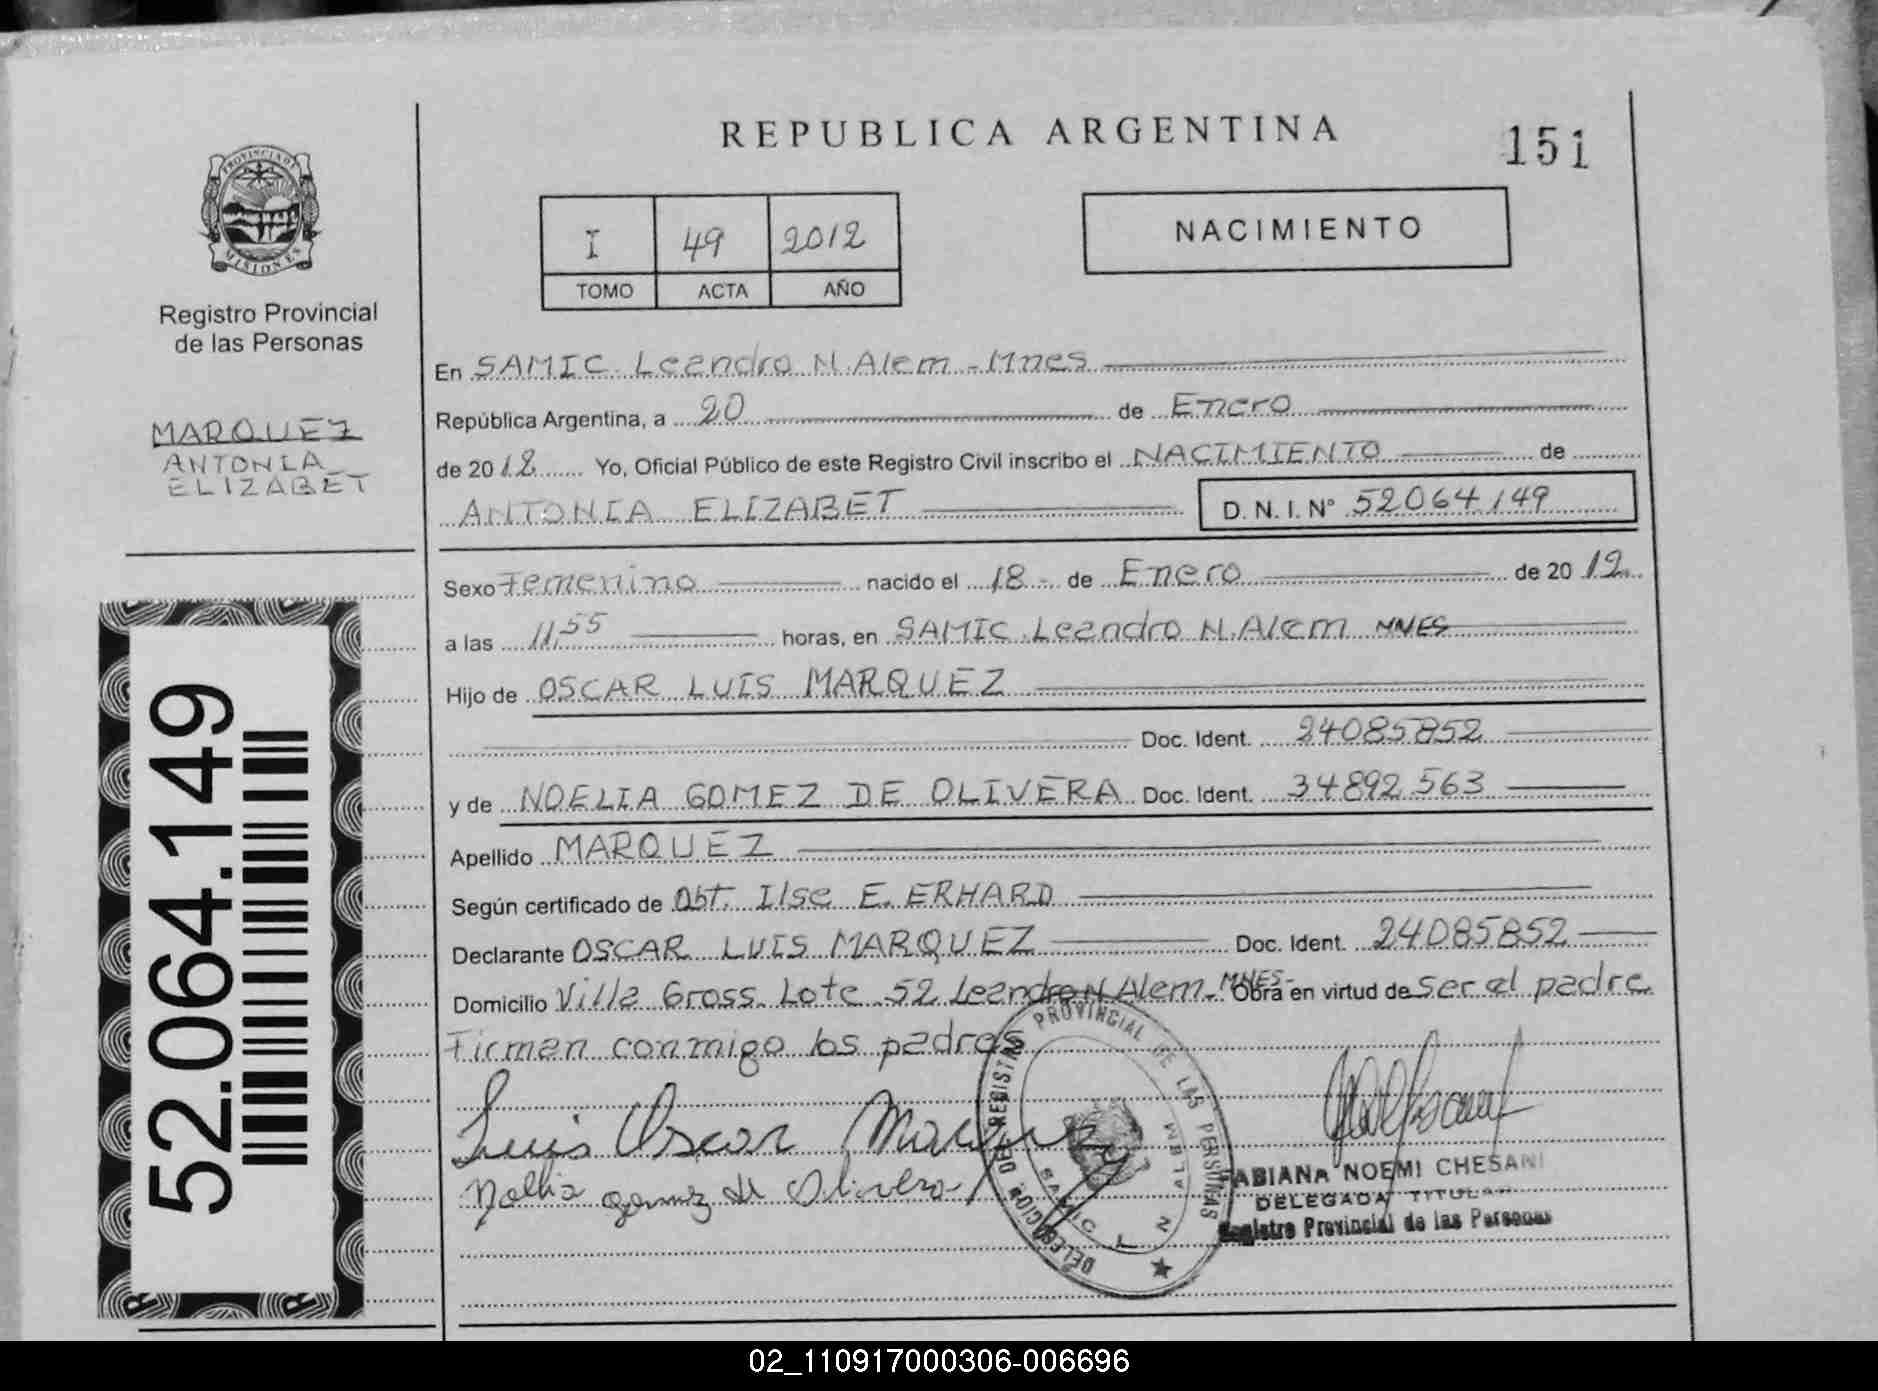 REPUBLICA ARGENTINA
151
PROVINCIA DE
MISIONES
Registro Provincial
de las Personas
I 49 2012
TOMO ACTA AÑO
NACIMIENTO
MARQUEZ
ANTONIA
ELIZABET
En SAMIC. Leandro N. Alem - Mnes
República Argentina, a 20 de Enero
de 2012 Yo, Oficial Público de este Registro Civil inscribo el NACIMIENTO de
ANTONIA ELIZABET D. N. I. N° 52064149
Sexo Femenino nacido el 18 - de Enero de 2012
a las 11,55 horas, en SAMIC. Leandro N. Alem MNES
Hijo de OSCAR LUIS MARQUEZ
Doc. Ident. 24085852
y de NOELIA GOMEZ DE OLIVERA Doc. Ident. 34892563
Apellido MARQUEZ
Según certificado de Obt. Ilse E. ERHARD
Declarante OSCAR LUIS MARQUEZ Doc. Ident. 24085852
Domicilio Villa Gross Lote 52 Leandro N Alem - MNES - Obra en virtud de ser el padre
Firman conmigo los padres
Luis Oscar Marquez
Noelia gomez de Olivera
DELEGACION DEL REGISTRO PROVINCIAL DE LAS PERSONAS
SAMIC L N ALEM
FABIANA NOEMI CHESANI
DELEGADA TITULAR
Registro Provincial de las Personas
52.064.149
02_110917000306-006696